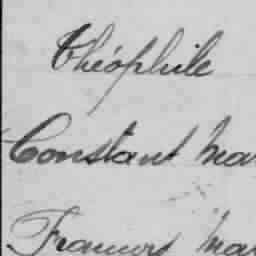 Théophile
Constant Ma
Francois Mar